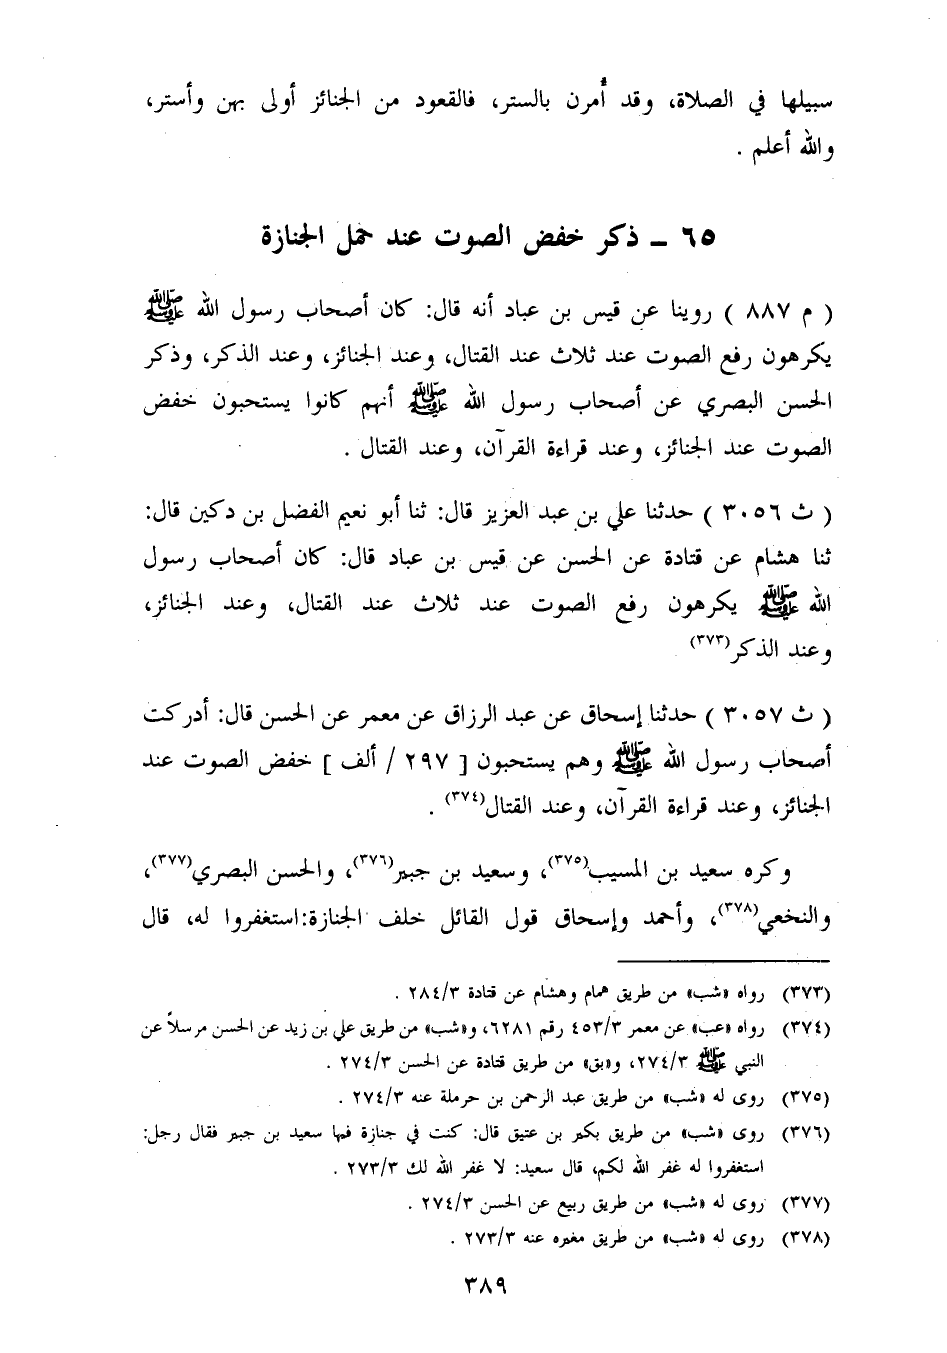 سبيلها في الصلاة، وقد أُمرن بالستر، فالقعود من الجنائز أولى بهن وأستر،
والله أعلم .
٦٥ ــ ذكر خفض الصوت عند حمل الجنازة
( م ٨٨٧ ) روينا عن قيس بن عباد أنه قال: كان أصحاب رسول الله ﷺ
يكرهون رفع الصوت عند ثلاث عند القتال، وعند الجنائز، وعند الذكر، وذكر
الحسن البصري عن أصحاب رسول الله ﷺ أنهم كانوا يستحبون خفض
الصوت عند الجنائز، وعند قراءة القرآن، وعند القتال .
( ث ٣٠٥٦ ) حدثنا علي بن عبد العزيز قال: ثنا أبو نعيم الفضل بن دكين قال:
ثنا هشام عن قتادة عن الحسن عن قيس بن عباد قال: كان أصحاب رسول
الله ﷺ يكرهون رفع الصوت عند ثلاث عند القتال، وعند الجنائز،
وعند الذكر(٣٧٣)
( ث ٣٠٥٧ ) حدثنا إسحاق عن عبد الرزاق عن معمر عن الحسن قال: أدركت
أصحاب رسول الله ﷺ وهم يستحبون [ ٢٩٧ / ألف ] خفض الصوت عند
الجنائز، وعند قراءة القرآن، وعند القتال(٣٧٤) .
وكره سعيد بن المسيب(٣٧٥)، وسعيد بن جبير(٣٧٦)، والحسن البصري(٣٧٧)،
والنخعي(٣٧٨)، وأحمد وإسحاق قول القائل خلف الجنازة:استغفروا له، قال
(٣٧٣) رواه «شب» من طريق همام وهشام عن قتادة ٢٨٤/٣ .
(٣٧٤) رواه «عب» عن معمر ٤٥٣/٣ رقم ٦٢٨١، و«شب» من طريق علي بن زيد عن الحسن مرسلاً عن
النبي ﷺ ٢٧٤/٣، و«بق» من طريق قتادة عن الحسن ٢٧٤/٣ .
(٣٧٥) روى له «شب» من طريق عبد الرحمن بن حرملة عنه ٢٧٤/٣ .
(٣٧٦) روى «شب» من طريق بكير بن عتيق قال: كنت في جنازة فيها سعيد بن جبير فقال رجل:
استغفروا له غفر الله لكم، قال سعيد: لا غفر الله لك ٢٧٣/٣ .
(٣٧٧) روى له «شب» من طريق ربيع عن الحسن ٢٧٤/٣ .
(٣٧٨) روى له «شب» من طريق مغيره عنه ٢٧٣/٣ .
٣٨٩